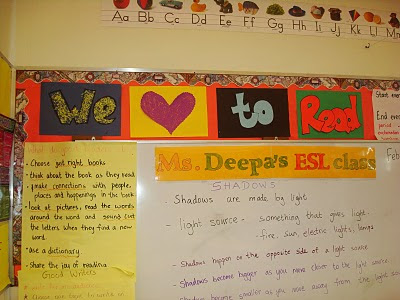 Aa Bb Cc Dd Ee Ff Gg Hh Ii Jj Kk Ll M
We to Read
Start
End
period
Feb
Ms. Deepa's ESL class
• Choose got right books
• think about the book as they read
• make connections with people,
places and happenings in the book
• look at pictures, read the words
around the word and sound out
the letters when they find a new
word.
• Use a dictionary
• Share the joy of reading
Good Writers
SHADOWS
- Shadows are made by light
- light source - something that gives light.
- fire, sun, electric lights, lamps
- Shadows happen to the opposite side of a light source
- Shadows become bigger as you move closer to the light source
- Shadows become smaller as you move away from the light source